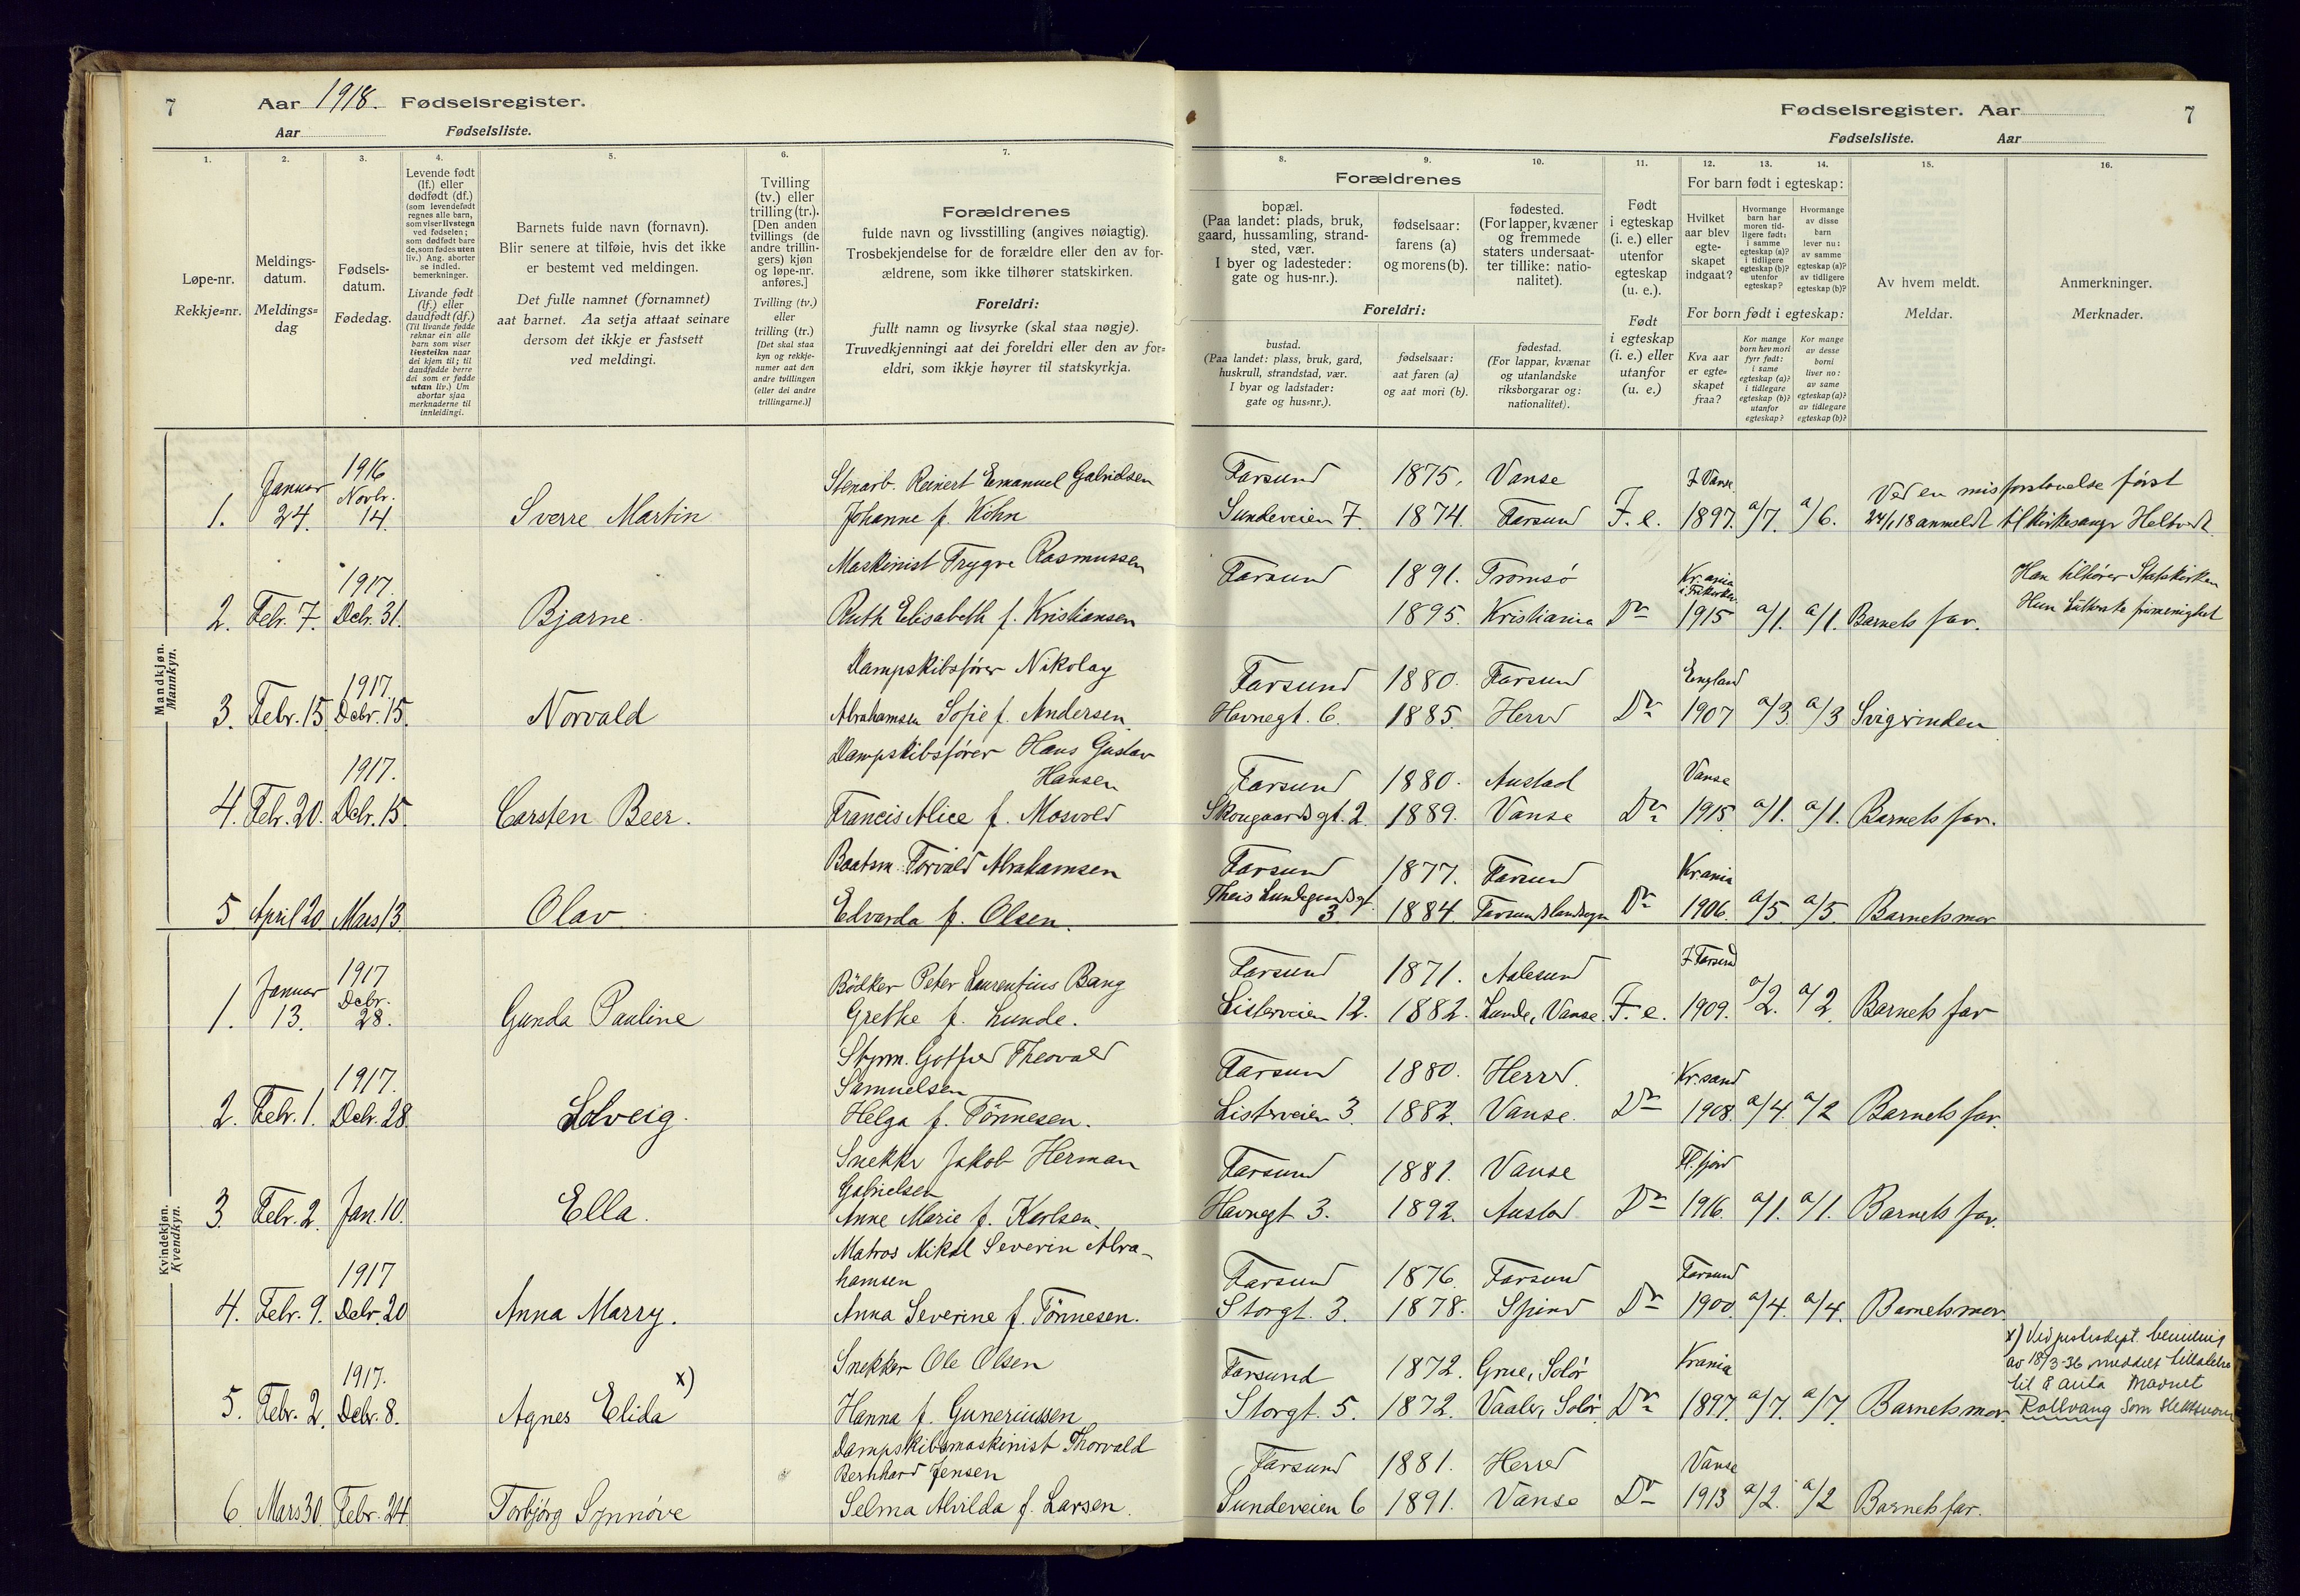 7
Aar 1918. Fødselsregister.
Aar Fødselsliste.
Fødselsregister. Aar
7
Fødselsliste. Aar
1.
2.
3.
4.
5.
6.
7.
8.
9.
10.
11.
12.
13.
14.
15.
16.
Løpe-nr.
Rekkje=nr.
Meldings-
datum.
Meldings=
dag
Fødsels-
datum.
Fødedag.
Levende født
(lf.) eller
dødfødt (df.)
(som levendefødt
regnes alle barn,
som viser livstegn
ved fødselen;
som dødfødt bare
de, som fødes uten
liv.) Ang. aborter
se indled.
bemerkninger.
Livande født
(lf.) eller
daudfødt (df.)
(Til livande fødde
reknar ein alle
barn som viser
livsteikn naar
dei kjem til; til
daudfødde berre
dei som er fødde
utan liv.) Um
abortar sjaa
merknaderne til
innleidingi.
Barnets fulde navn (fornavn).
Blir senere at tilføie, hvis det ikke
er bestemt ved meldingen.
Det fulle namnet (fornamnet)
aat barnet. Aa setja attaat seinare
dersom det ikkje er fastsett
ved meldingi.
Tvilling
(tv.) eller
trilling (tr.).
[Den anden
tvillings (de
andre trillin-
gers) kjøn
og løpe-nr.
anføres.]
Tvilling (tv.)
eller
trilling (tr.)
[Det skal staa
kyn og rekkje-
numer aat den
andre tvillingen
(eller dei andre
trillingarne.)]
Forældrenes
fulde navn og livsstilling (angives nøiagtig).
Trosbekjendelse for de forældre eller den av for-
ældrene, som ikke tilhører statskirken.
Foreldri:
fullt namn og livsyrke (skal staa nøgje).
Truvedkjenningi aat dei foreldri eller den av for=
eldri, som ikkje høyrer til statskyrkja.
Forældrenes
bopæl.
(Paa landet: plads, bruk,
gaard, hussamling, strand-
sted, vær.
I byer og ladesteder:
gate og hus-nr.).
fødselsaar:
farens (a)
og morens (b).
fødested.
(For lapper, kvæner
og fremmede
staters undersaat-
ter tillike: natio-
nalitet).
Foreldri:
bustad.
(Paa landet: plass, bruk, gard,
huskrull, strandstad, vær.
I byar og ladstader:
gate og hus=nr.).
fødselsaar:
aat faren (a)
og aat mori (b).
fødestad.
(For lappar, kvænar
og utanlandske
riksborgarar og:
nationalitet).
Født
i egteskap
(i. e.) eller
utenfor
egteskap
(u. e.).
Født
i egteskap
(i. e.) eller
utanfor
(u. e.)
For barn født i egteskap:
Hvilket
aar blev
egte-
skapet
indgaat?
Hvormange
barn har
moren tid-
ligere født:
i samme
egteskap (a)?
i tidligere
egteskap (b)?
utenfor
egteskap?
Hvormange
av disse
barn
lever nu:
av samme
egteskap (a)?
av tidligere
egteskap (b)?
For born født i egteskap:
Kva aar
er egte=
skapet
fraa?
Kor mange
born hev mori
fyrr født:
i same
egteskap (a)?
i tidlegare
egteskap (b)?
utanfor
egteskap?
Kor mange
av desse
borni
liver no:
av same
egteskap (a)?
av tidlegare
egteskap (b)?
Av hvem meldt.
Meldar.
Anmerkninger.
Merknader.
Mandkjøn.
Mannkyn.
1. Januar 24. 1916 Novbr. 14. Sverre Martin
Stenarb. Reinert Emanuel Gabrielsen
Johanne f. Kohn
Farsund 1875. Vanse
Sundeveien 7. 1874. Farsund F. e. I Vanse 1897. a/7. a/6.
Ved en misforstaaelse først
24/1 18 anmeldt til kirkesanger
2. Febr. 7. 1917. Debr. 31. Bjarne.
Maskinist Trygve Rasmussen
Ruth Elisabeth f. Kristiansen
Farsund 1891. Tromsø
1895. Kristiania Do Kr.ania 1915 a/1. a/1. Barnets far.
Han tilhører Statskirken
Hun Lutherske frimenighet
3. Febr. 15. 1917. Debr. 15. Norvald
Dampskibsfører Nikolay
Abrahamsen Sofie f. Andersen
Farsund 1880. Farsund
Havnegt. 6. 1885. Herred Do England 1907 a/3 a/3 Svigerinden
4. Febr. 20. 1917. Debr. 15. Carsten Beer.
Dampskibsfører Hans Gustav
Hansen
Francis Alice f. Mosvold
Farsund 1880. Austad
Skougaardsgt. 2. 1889. Vanse Do Vanse 1915 a/1. a/1. Barnets far.
5. April 20. Mars 13. Olav.
Baatsm. Torvald Abrahamsen
Edvarda f. Olsen.
Farsund 1877. Farsund
Theis Lundegaardsgt. 3. 1884. Farsunds landsogn Do Kr.ania 1906. a/5. a/5. Barnets mor
Kvindekjøn.
Kvendkyn.
1. Januar 13. 1917 Debr. 28. Gunda Pauline
Bødker Peter Laurentius Bang
Grethe f. Lunde.
Farsund 1871. Aalesund
Listerveien 12. 1882. Lunde, Vanse. F. e. I Farsund 1909. a/2. a/2 Barnets far
2. Febr. 1. 1917. Debr. 28. Solveig.
Styrm. Gotfred Theovald
Samuelsen
Helga f. Tönnesen.
Farsund 1880. Herred.
Listerveien 3. 1882. Vanse. Do Kr.sand 1908. a/4. a/2 Barnets far.
3. Febr. 2. Jan. 10. Ella.
Snekker Jakob Herman
Gabrielsen
Anne Marie f. Karlsen.
Farsund 1881. Vanse
Havnegt 3. 1892. Austad Do Fl.fjord 1916. a/1. a/1. Barnets far.
4. Febr. 9. 1917 Debr. 20 Anna Marry.
Matros Mikal Severin Abra-
hamsen
Anna Severine f. Tönnesen.
Farsund 1876. Farsund
Storgt. 3. 1878. Spind Do Farsund 1900 a/4. a/4. Barnets mor.
5. Febr. 2. 1917. Debr. 8. Agnes Elida x)
Snekker Ole Olsen
Hanna f. Guneriussen
Farsund 1872. Grue, Solør
Storgt. 5. 1872. Vaaler, Solør Do Krania 1897. a/7. a/7. Barnets mor.
x) Ved justisdept. bevilling
av 18/3-36 meddelt tillatelse
til å anta navnet
Rollvang som slektsnavn
6. Mars 30. Febr. 24. Torbjørg Synnøve
Dampskibsmaskinist Thorvald
Bernhard Jensen
Selma Alvilda f. Larsen.
Farsund 1881. Herred
Sundeveien 6 1891. Vanse Do Vanse 1913 a/2. a/2 Barnets far.